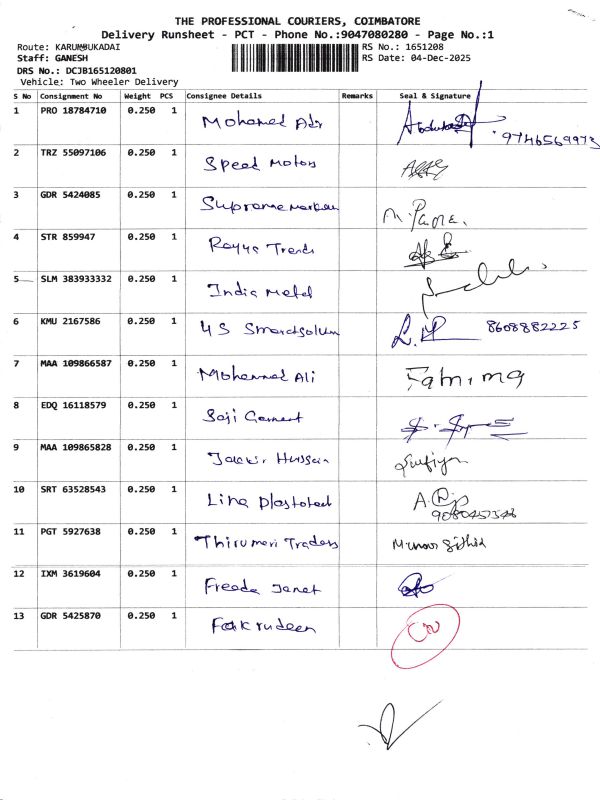 THE PROFESSIONAL COURIERS, COIMBATORE
Delivery Runsheet - PCT - Phone No.:9047080280 - Page No.:1
Route: KARUMBUKADAI
RS No.: 1651208
Staff: GANESH
RS Date: 04-Dec-2025
DRS No.: DCJB165120801
Vehicle: Two Wheeler Delivery
S No Consignment No Weight PCS Consignee Details Remarks Seal & Signature
1 PRO 18784710 0.250 1 Mohamed
9746569973
2 TRZ 55097106 0.250 1 Speed Motors
3 GDR 5424085 0.250 1 Supreme
4 STR 859947 0.250 1 Trends
5 SLM 383933332 0.250 1 India Metal
6 KMU 2167586 0.250 1 4S 8608882225
7 MAA 109866587 0.250 1 Mohammed Ali Fathima
8 EDQ 16118579 0.250 1 Saji Garment
9 MAA 109865828 0.250 1 Jakkir Hussain Sufiya
10 SRT 63528543 0.250 1 Lina Plastotech
11 PGT 5927638 0.250 1 Thirumeri Traders
12 IXM 3619604 0.250 1 Freeda Janet
13 GDR 5425870 0.250 1 Fakrudeen